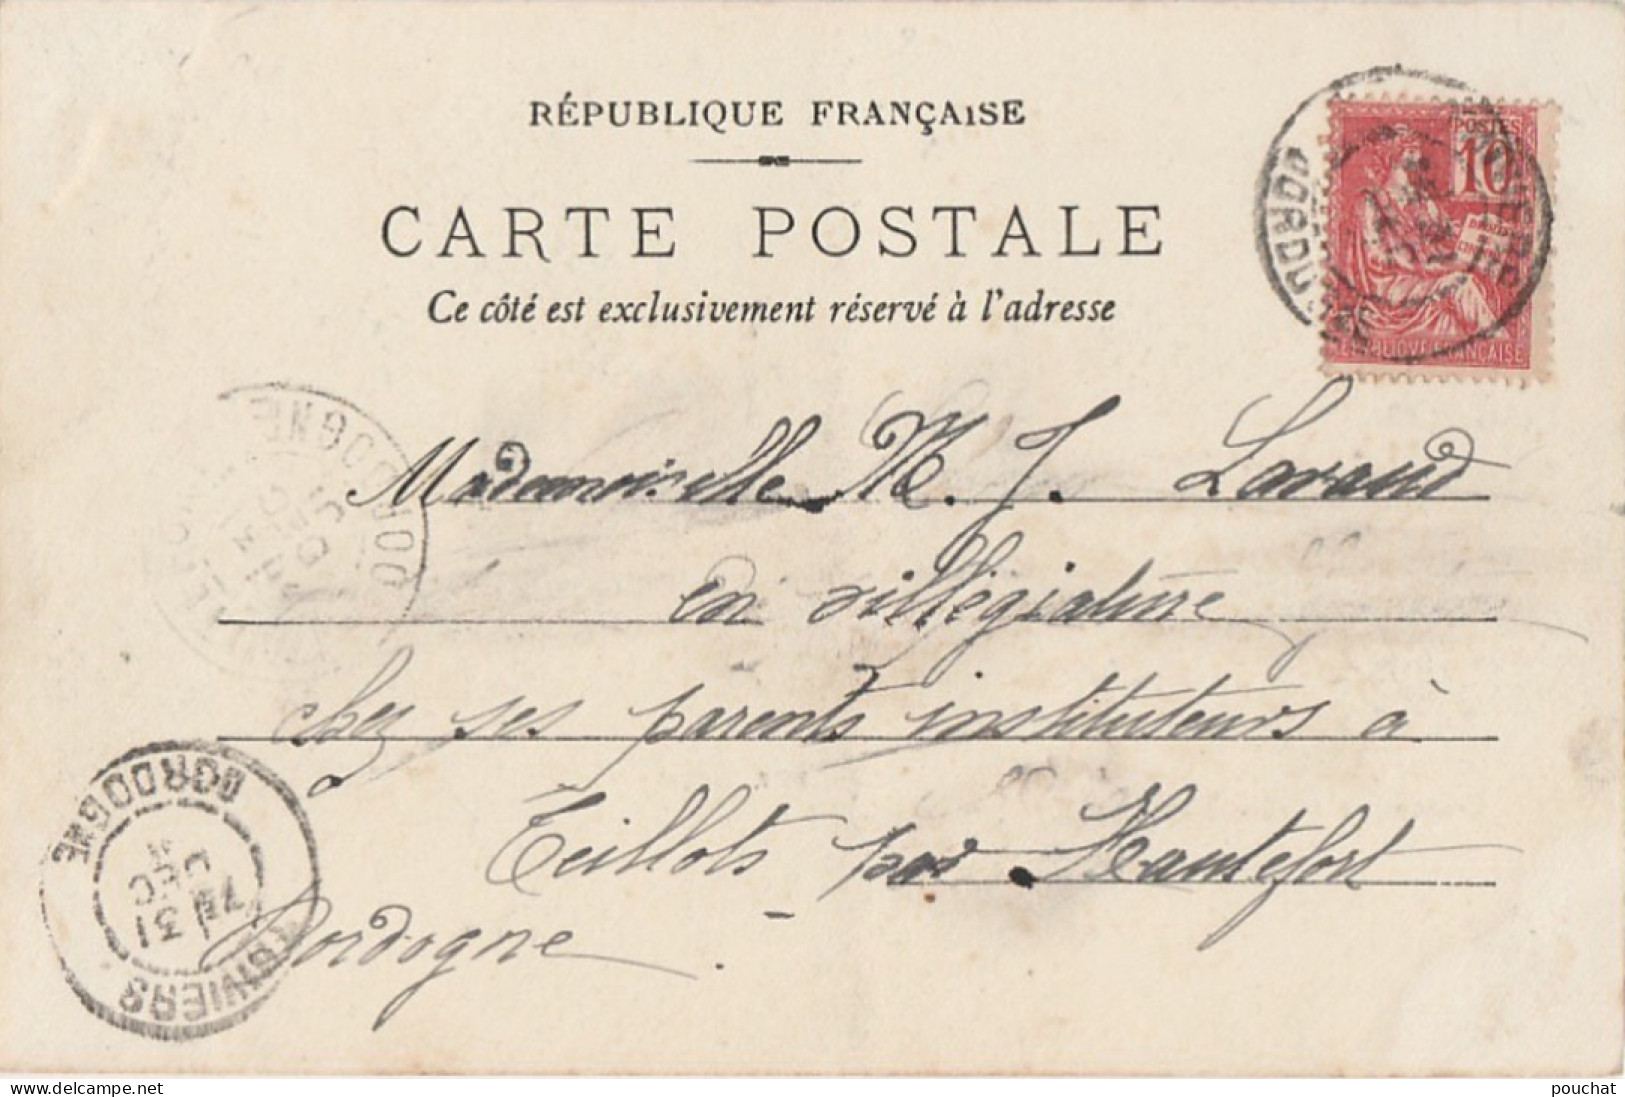 RÉPUBLIQUE FRANÇAISE
CARTE POSTALE
Ce côté est exclusivement réservé à l'adresse
POSTES
10
RÉPUBLIQUE FRANÇAISE
DORDOGNE
Mademoiselle M. J. Lavaud
en villégiature
chez ses parents instituteurs à
Teillots par Hautefort
Dordogne
DORDOGNE
DORDOGNE
www.delcampe.net
pouchat